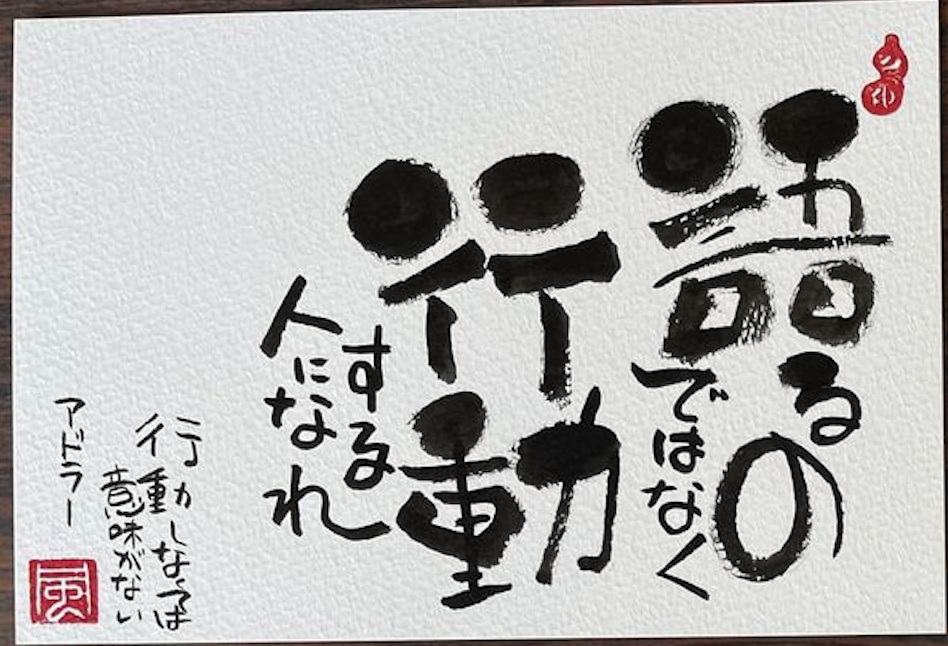 語るの
ではなく
行動
する
人になれ
行動しなくては
意味がない
アドラー
風